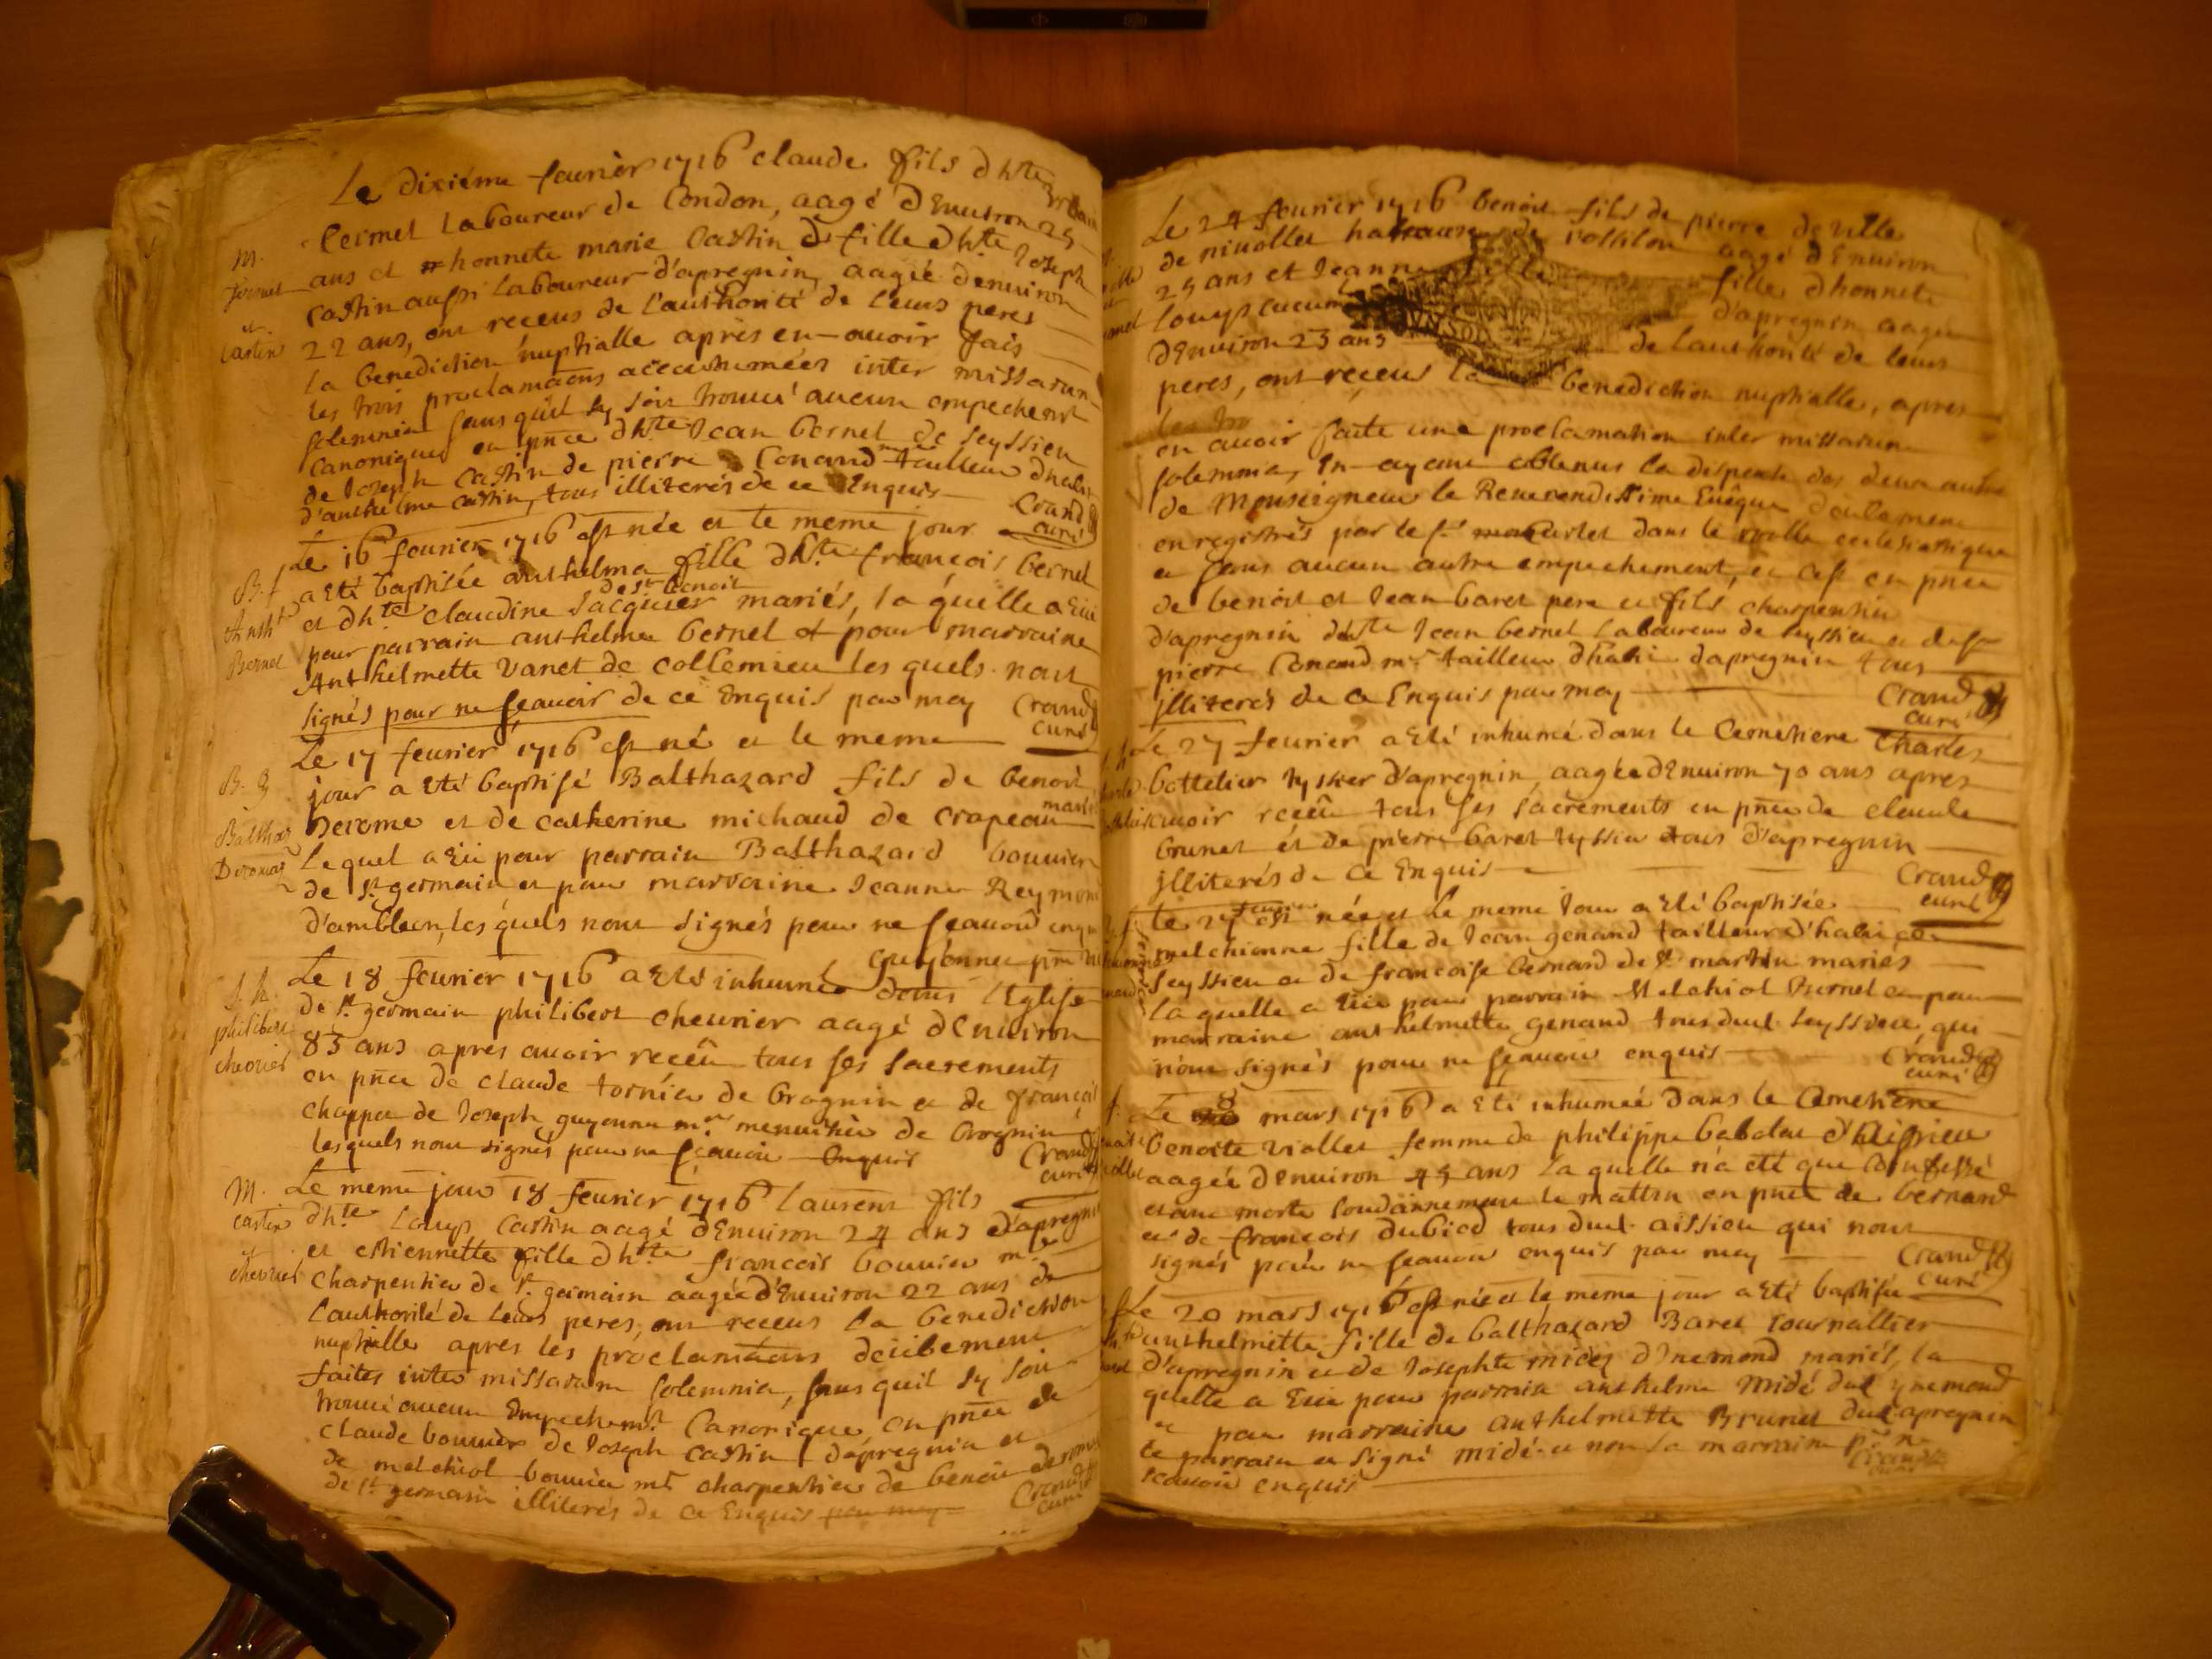 Le dixiéme feurier 1716 claude fils dhte
M. fermet Laboureur de Condon, aagé dEnuiron 25
ans et honnete marie Castin fille dhte Joseph
et Castin aussi Laboureur d'apregnin, aagée denuiron
Castin 22 ans, ont receus de l'authorité de leurs peres
la benediction nuptialle apres en auoir fais
les trois proclamaons accoutumées inter missarum
solemnia sans quil sy soit trouué aucun empechemt
canonique en pnce dhte Jean bernel de seyssieu
de Joseph Castin de pierre Conand mre tailleur dhabit
d'anthelme castin, tous illiterés de ce Enquis Crand curé
Le 16 feurier 1716 est née et le meme jour
B. f a eté baptisée anthelma fille dhte françois bernel
de st benoit
Anth et dhte claudine Jacquier mariés, la quelle a eue
Bernel pour parrain anthelme bernel et pour marraine
Anthelmette Vanet de collemieu les quels nont
signés pour ne sçauoir de ce Enquis par moy Crand curé
Le 17 feurier 1716 est né et le meme
B. g jour a eté baptisé Balthazard fils de benoit
Balthaz Derome et de catherine michaud de crapeau mariés
Le quel a eu pour parrain Balthazard bouuier
de st germain et pour marraine Jeanne Reymond
d'ambleon, les quels nont signés pour ne sçauoir
Le 18 feurier 1716 a eté inhumé dans l'Eglise
de st germain philibert cheurier aagé dEnuiron
philibert 85 ans apres auoir receu tous ses sacrements
cheurier en pnce de claude tornier de brognin et de françois
chappee de Joseph guyonnee mre menuisier de brognin
lesquels nont signés pour ne sçauoir Enquis Crand curé
M. Le meme jour 18 feurier 1716 Laurent fils
castin dhte Louys Castin aagé dEnuiron 24 ans d'apregnin
et et estiennette fille dhte francois bouuier mre
cheurier charpentier de st germain aagée d'Enuiron 22 ans de
l'authorité de leurs peres, ont receus la benediction
nuptialle apres les proclamations deüement
faites inter missarum solemnia, sans quil sy soit
trouué aucun Empechemt Canonique, en pnce de
claude bouuier de Joseph castin d'apregnin et
de melchiol bouuier mre charpentier de benoit derome
de st germain illiterés de ce Enquis par moy Crand curé
Le 24 feurier 1716 benoit fils de pierre deuille
de niuollet de rossilon aagé dEnuiron
25 ans et Jeanne fille dhonnete
Louys d'apregnin aagée
dEnuiron 23 ans de l'authorité de leurs
peres, ont receus la benediction nuptialle, apres
en auoir faite une proclamation inter missarum
solemnia, En ayant obtenus la dispense des deux autres
de Monseigneur le Reuerendissime Euêque
enregistrés par le sr dans le ecclesiastique
et sans aucun autre empechement, et en pnce
de benoit et Jean baret pere et fils charpentier
d'apregnin dhte Jean bernel Laboureur de seyssieu et de
pierre Conand mre tailleur dhabit d'apregnin tous
illiterés de ce Enquis par moy Crand curé
Le 27 feurier a eté inhumé dans le Cemetiere Charles
bottelier tyssier d'apregnin, aagée dEnuiron 70 ans apres
auoir receu tous ses sacrements en pnce de claude
brunet et de pierre baret tyssier tous d'apregnin
illiterés de ce Enquis Crand curé
Le 27 feurier est née et le meme Jour a eté baptisée
melchionne fille de Jean genand tailleur d'habit de
seyssieu et de francoise bernard de st martin mariés
la quelle a eue pour parrain Melchiol Burnel et pour
marraine anthelmette genand tous dud seyssieu, qui
n'ont signés pour ne sçauoir enquis Crand curé
Le 8 mars 1716 a eté inhumée dans le Cemetiere
benoite viollet femme de philippe babolat d'
aagée denuiron 45 ans la quelle n'a eté que Confessé
etant morte soudainement le mattin en pnce de bernard
et de françois dubiod tous dud aissieu qui nont
signés pour ne sçauoir enquis par moy Crand curé
Le 20 mars 1716 est née et le meme jour a eté baptisée
anthelmette fille de balthazard Baret Journallier
d'apregnin et de Josephte midez dInemond mariés, la
quelle a Eue pour parrain anthelme Midé dud ynemond
et pour marraine anthelmette Brunet dud apregnin
Le parrain a signé midé et non la marraine pr ne
scauoir enquis Crand curé